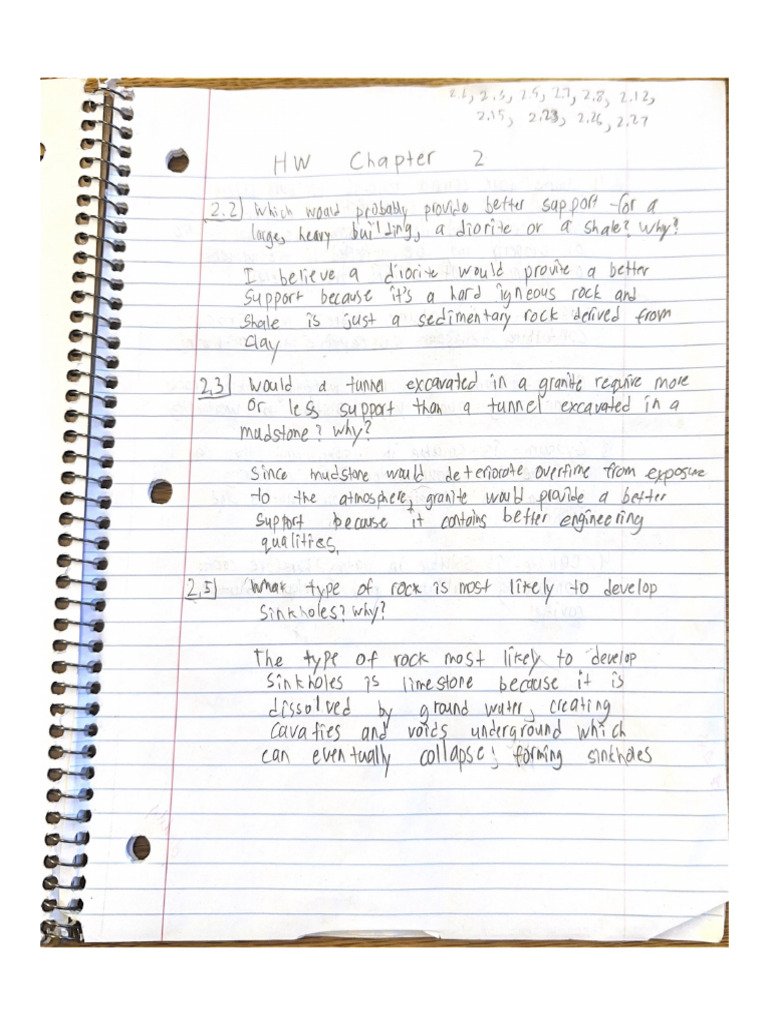 2.3, 2.5, 2.7, 2.8, 2.12,
2.15, 2.23, 2.26, 2.27
HW Chapter 2
2.2) Which would probably provide better support for a
large, heavy building, a diorite or a shale? Why?
I believe a diorite would provite a better
support because it's a hard igneous rock and
shale is just a sedimentary rock derived from
clay
2.3) Would a tunnel excavated in a granite require more
or less support than a tunnel excavated in a
mudstone? Why?
Since mudstone would deteriorate overtime from exposure
to the atmosphere, granite would provide a better
support because it contains better engineering
qualities.
2.5) What type of rock is most likely to develop
sinkholes? Why?
The type of rock most likely to develop
sinkholes is limestone because it is
dissolved by ground water, creating
cavafies and voids underground which
can eventually collapse, forming sinkholes